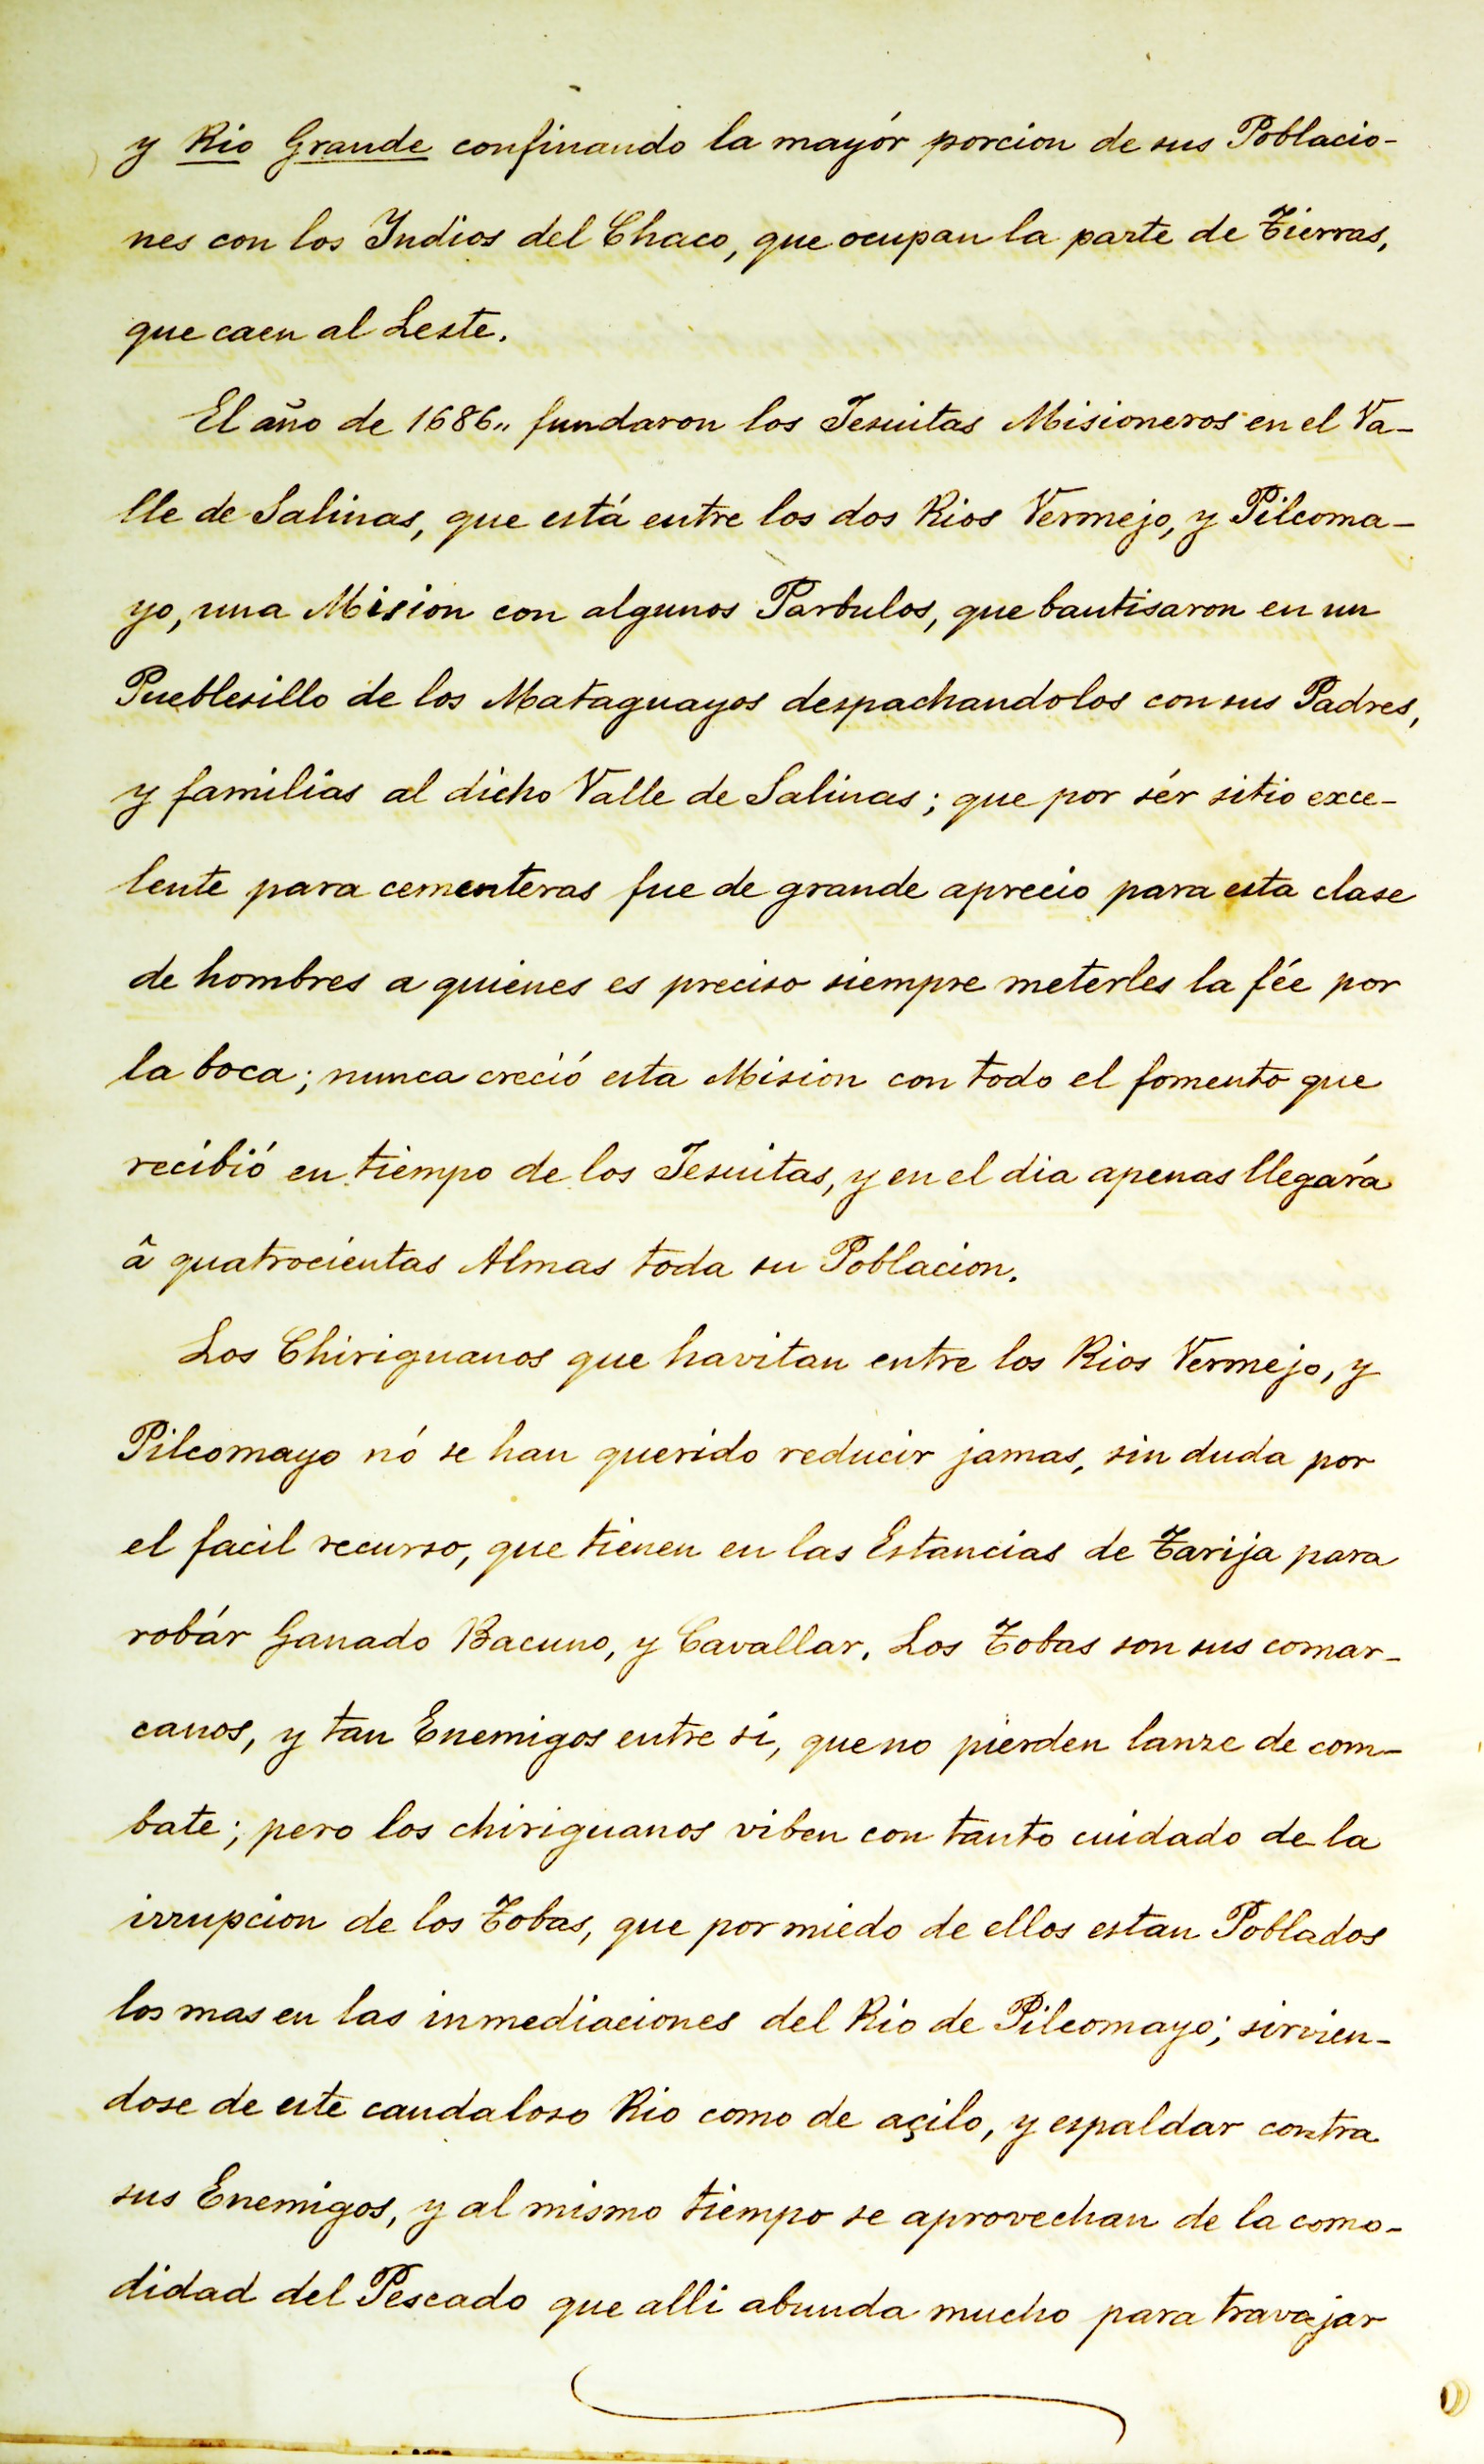 y Rio Grande confinando la mayór porcion de sus Poblacio-
nes con los Yndios del Chaco, que ocupan la parte de Tierras,
que caen al Leste.
El año de 1686„ fundaron los Jesuitas Misioneros en el Va-
lle de Salinas, que está entre los dos Rios Vermejo, y Pilcoma-
yo, una Mision con algunos Parbulos, que bautisaron en un
Pueblesillo de los Mataguayos despachandolos con sus Padres,
y familias al dicho Valle de Salinas; que por sér sitio exce-
lente para cementeras fue de grande aprecio para esta clase
de hombres a quienes es preciso siempre meterles la fée por
la boca; nunca creció esta Mision con todo el fomento que
recibió en tiempo de los Jesuitas, y en el dia apenas llegará
â quatrocientas Almas toda su Poblacion.
Los Chiriguanos que havitan entre los Rios Vermejo, y
Pilcomayo nó se han querido reducir jamas, sin duda por
el facil recurso, que tienen en las Estancias de Tarija para
robár Ganado Bacuno, y Cavallar. Los Tobas son sus comar-
canos, y tan Enemigos entre sí, que no pierden lanze de com-
bate; pero los chiriguanos viben con tanto cuidado de la
irrupcion de los Tobas, que por miedo de ellos estan Poblados
los mas en las inmediaciones del Rio de Pilcomayo; sirvien-
dose de este caudaloso Rio como de açilo, y espaldar contra
sus Enemigos, y al mismo tiempo se aprovechan de la como-
didad del Pescado que alli abunda mucho para travajar